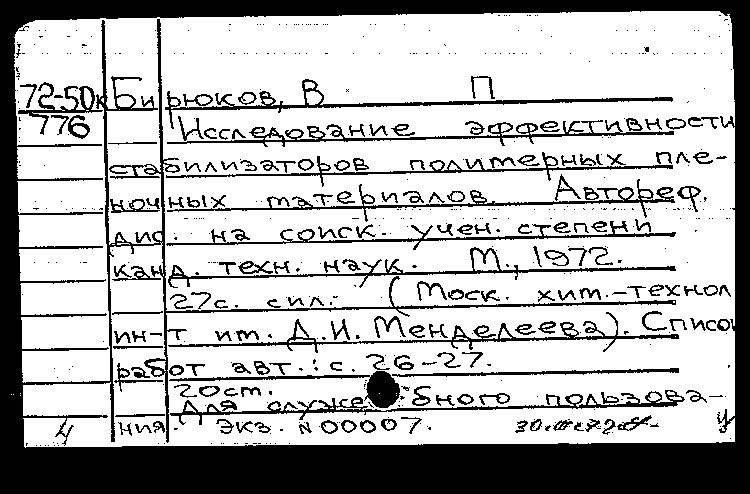 72-50к Бирюков, В П
776 Исследование эффективности
стабилизаторов полимерных пле-
ночных материалов. Автореф.
дис. на соиск. учен. степени
канд. техн. наук. М., 1972.
27с. с ил. (Моск. хим.-технол
ин-т им. Д.И. Менделеева). Список
работ авт.: с. 26-27.
20ст.
Для служебного пользова-
4 ния. Экз. №00007.